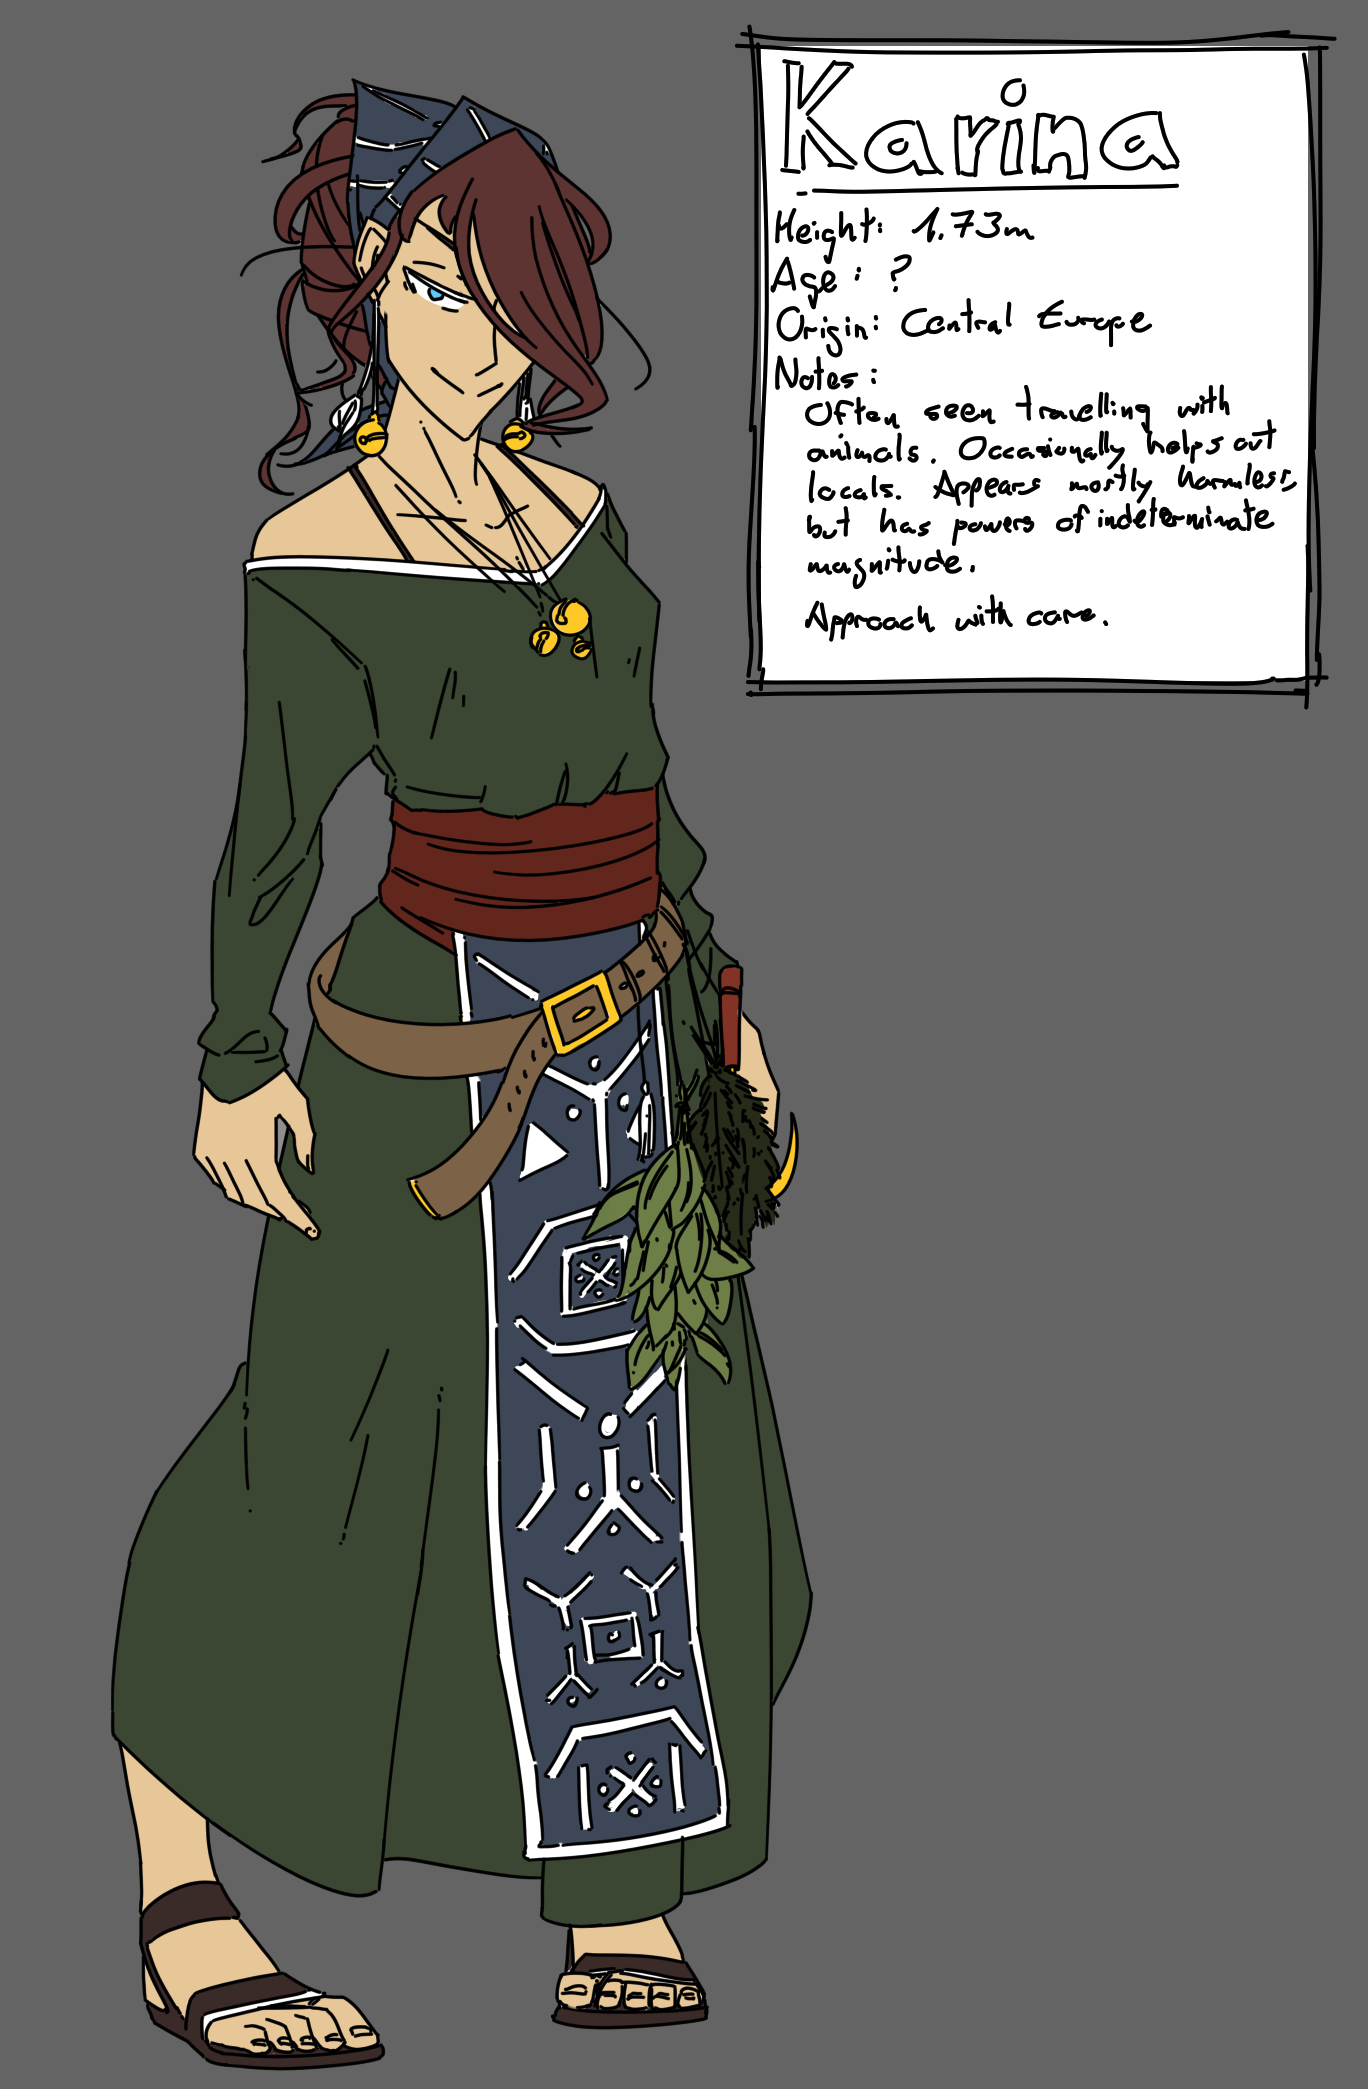 Karina
Height: 1.73m
Age: ?
Origin: Central Europe
Notes:
Often seen travelling with
animals. Occasionally helps out
locals. Appears mostly harmless,
but has powers of indeterminate
magnitude.
Approach with care.